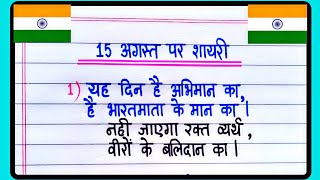 15 अगस्त पर शायरी
1) यह दिन है अभिमान का,
है भारतमाता के मान का।
नही जाएगा रक्त व्यर्थ,
वीरों के बलिदान का।